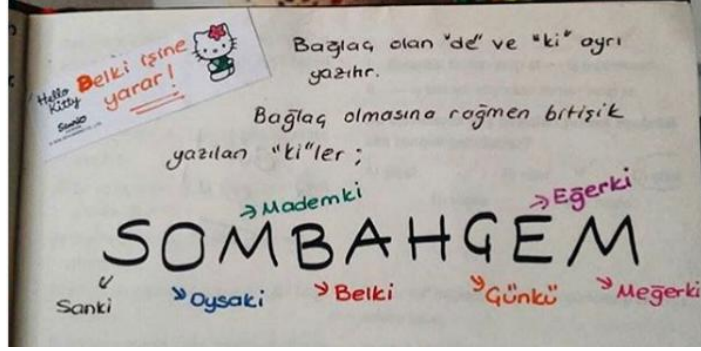 Hello Kitty
Belki işine
yarar!
SANRIO
Bağlaç olan "de" ve "ki" ayrı
yazılır.
Bağlaç olmasına rağmen bitişik
yazılan "ki"ler ;
Mademki
Eğerki
SOMBAHGEM
Sanki
Oysaki
Belki
Günkü
Meğerki